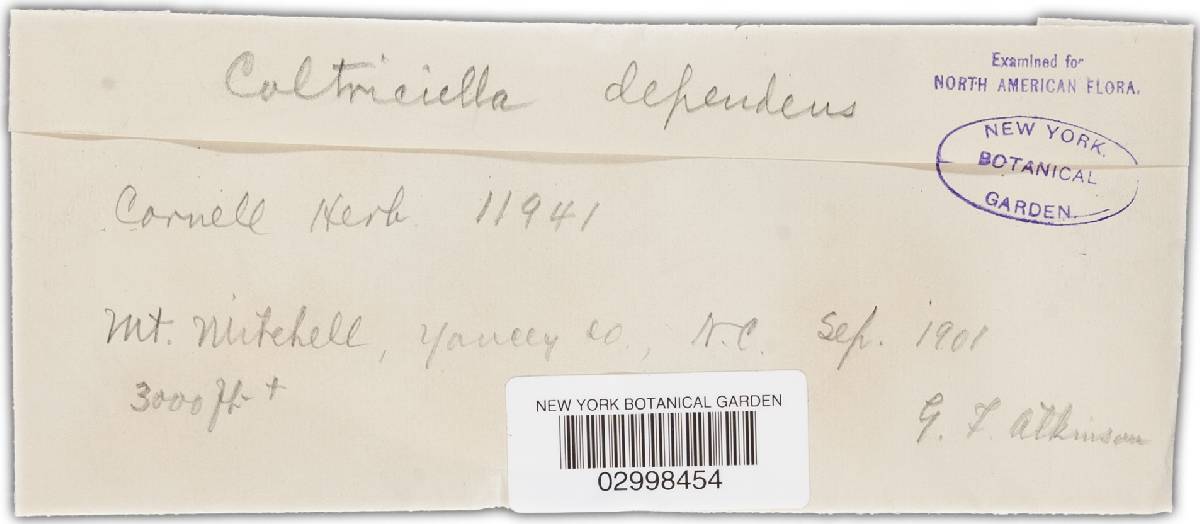 Coltriciella dependens
Examined for
NORTH AMERICAN FLORA.
NEW YORK
BOTANICAL
GARDEN
Cornell Herb. 11941
Mt. Mitchell, Yancey Co., N.C. Sep. 1901
3000 ft +
G. F. Atkinson
NEW YORK BOTANICAL GARDEN
02998454